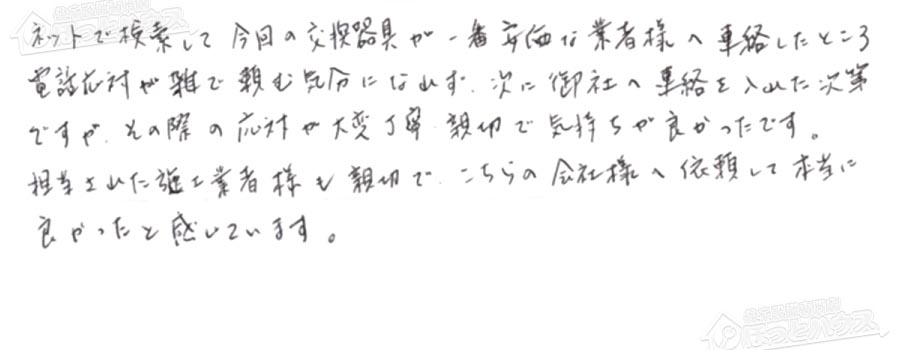 ネットで検索して今回の交換器具が一番安価な業者様へ連絡したところ
電話応対が雑で頼む気分になれず、次に御社へ連絡を入れた次第
ですが、その際の応対が大変丁寧、親切で気持ちが良かったです。
担当された施工業者様も親切で、こちらの会社様へ依頼して本当に
良かったと感じています。
ほっとハウス